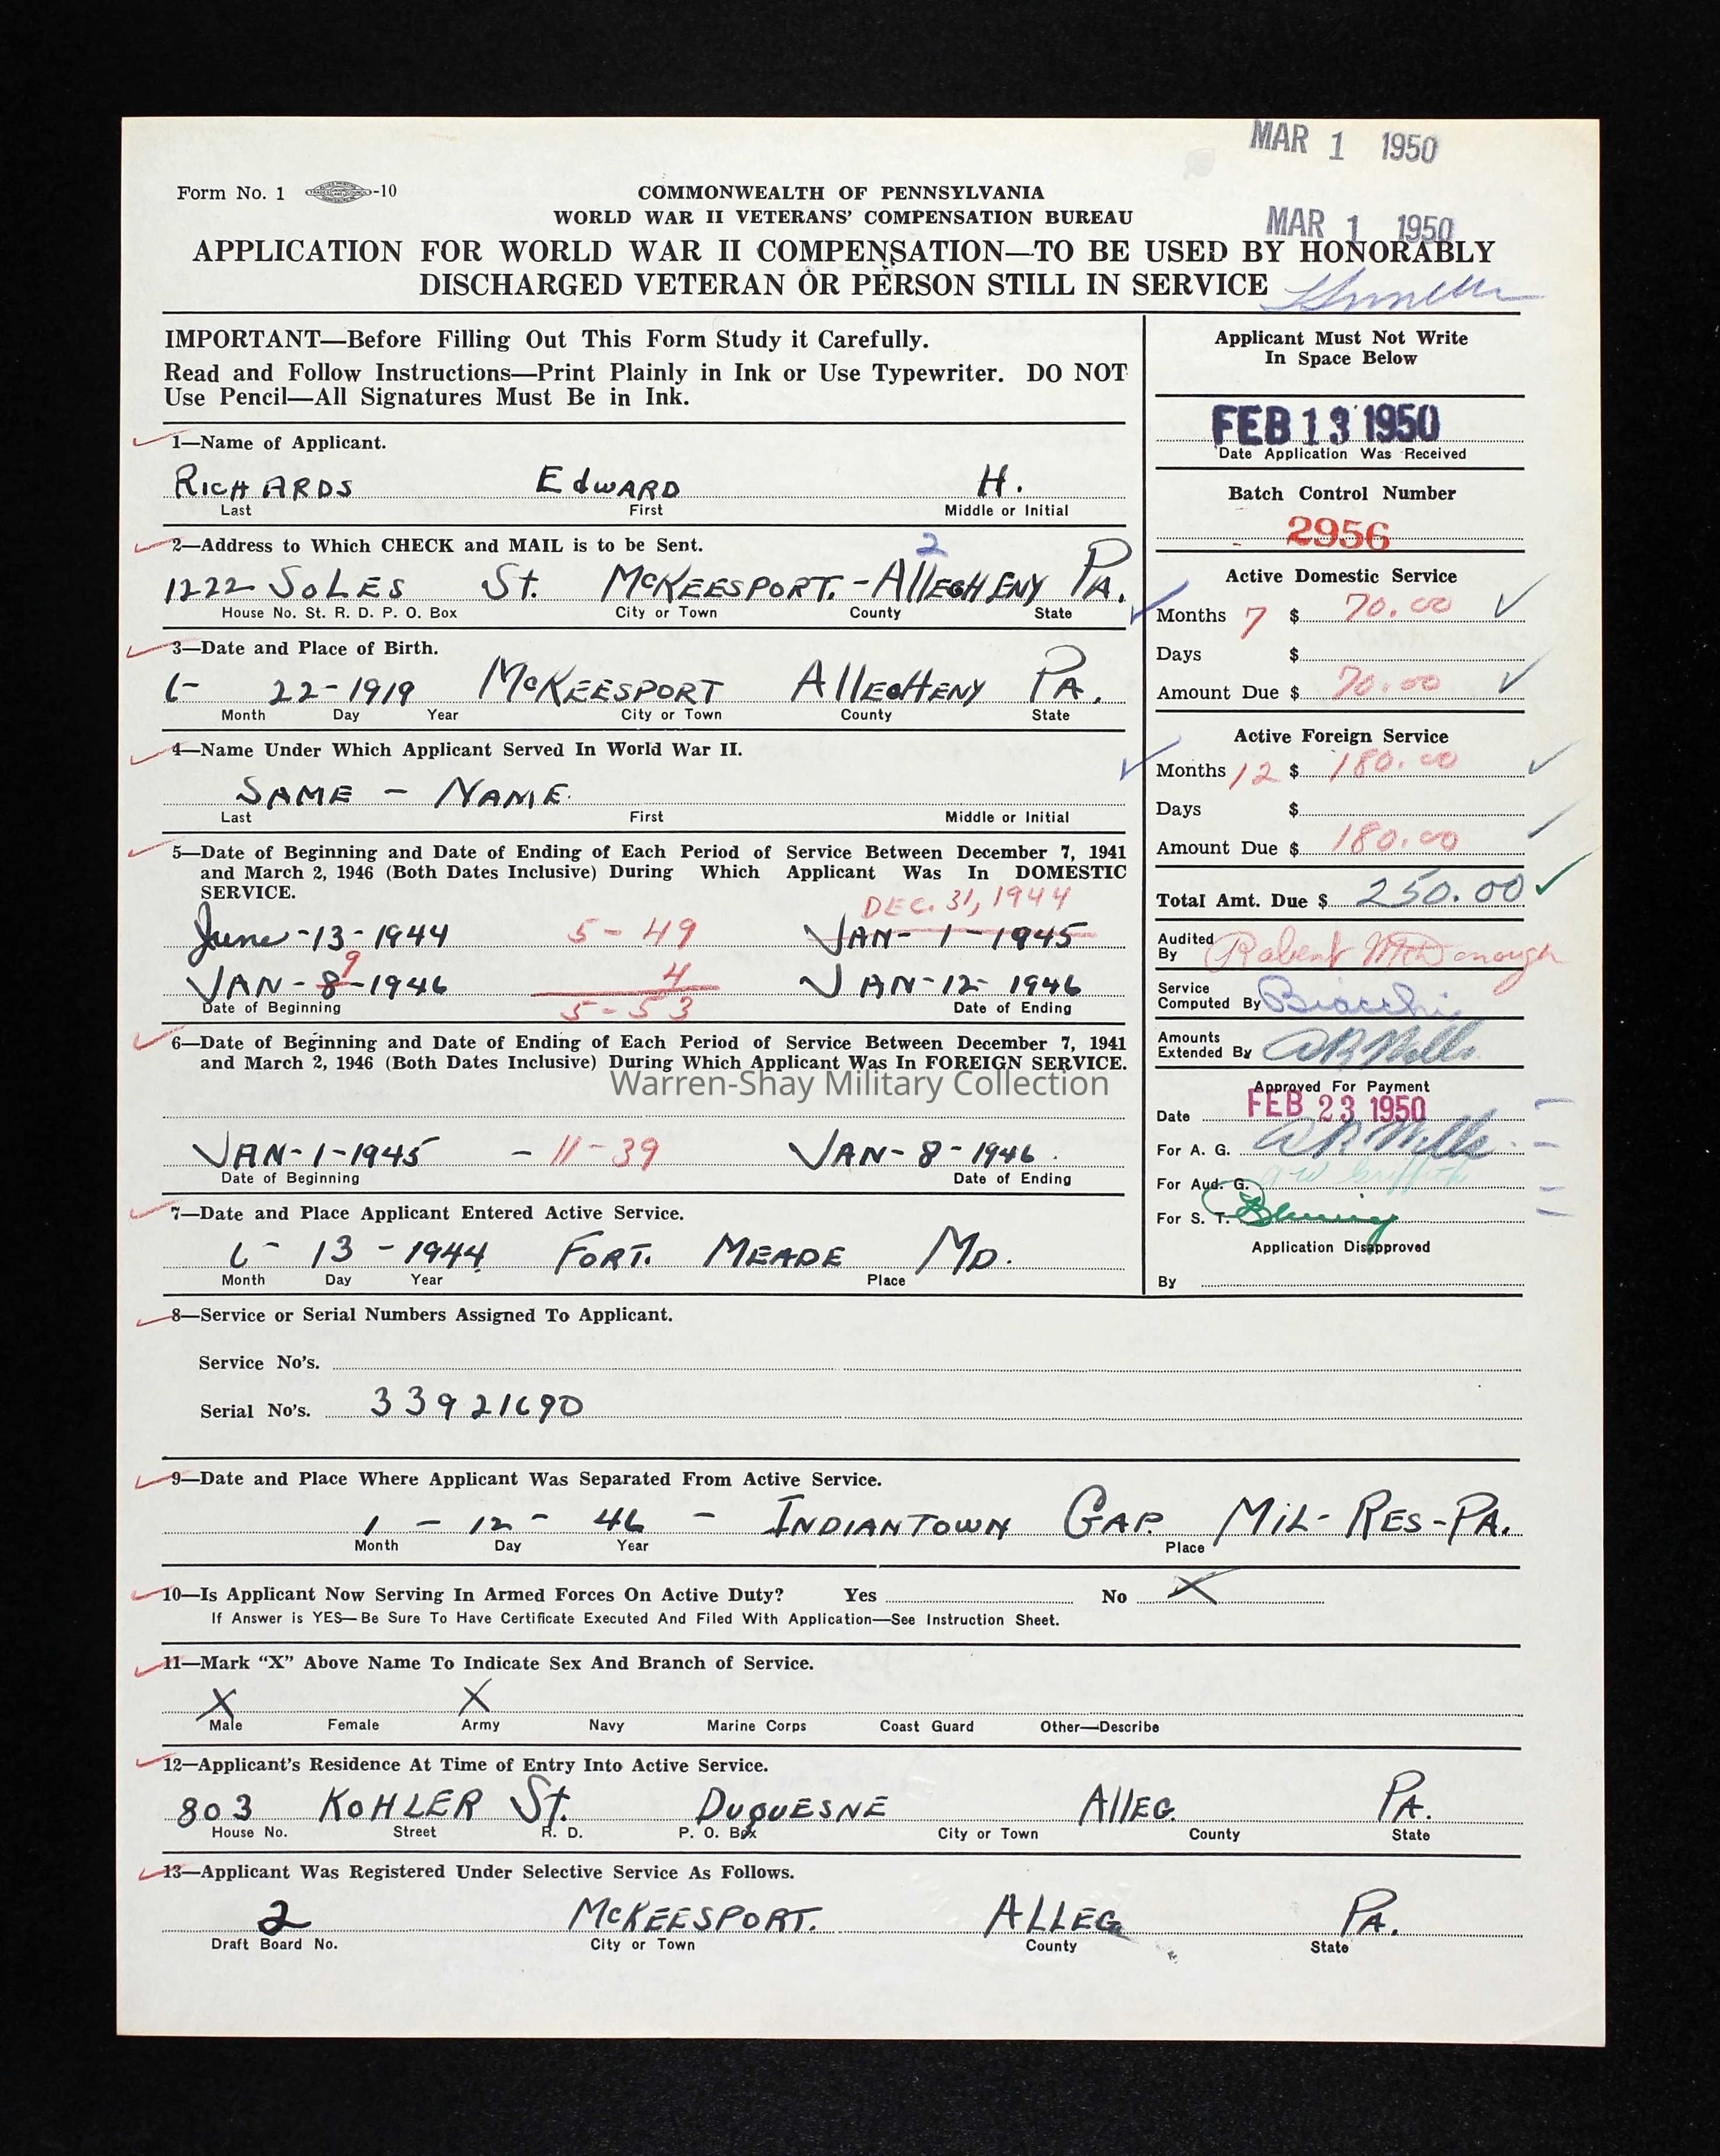 MAR 1 1950
Form No. 1 -10
COMMONWEALTH OF PENNSYLVANIA
WORLD WAR II VETERANS' COMPENSATION BUREAU
MAR 1 1950
APPLICATION FOR WORLD WAR II COMPENSATION—TO BE USED BY HONORABLY
DISCHARGED VETERAN OR PERSON STILL IN SERVICE
IMPORTANT—Before Filling Out This Form Study it Carefully.
Read and Follow Instructions—Print Plainly in Ink or Use Typewriter. DO NOT
Use Pencil—All Signatures Must Be in Ink.
1—Name of Applicant.
RICHARDS EdWARD H.
Last First Middle or Initial
2—Address to Which CHECK and MAIL is to be Sent.
2
1222 SOLES St. McKEESPORT. - AllEGHENY PA.
House No. St. R. D. P. O. Box City or Town County State
3—Date and Place of Birth.
6- 22-1919 McKEESPORT AllEGHENY PA.
Month Day Year City or Town County State
4—Name Under Which Applicant Served In World War II.
SAME - NAME.
Last First Middle or Initial
5—Date of Beginning and Date of Ending of Each Period of Service Between December 7, 1941
and March 2, 1946 (Both Dates Inclusive) During Which Applicant Was In DOMESTIC
SERVICE.
DEC. 31, 1944
June-13-1944 5-49 JAN-1-1945
9
JAN-8-1946 4 JAN-12-1946
Date of Beginning 5-53 Date of Ending
6—Date of Beginning and Date of Ending of Each Period of Service Between December 7, 1941
and March 2, 1946 (Both Dates Inclusive) During Which Applicant Was In FOREIGN SERVICE.
Warren-Shay Military Collection
JAN-1-1945 - 11-39 JAN-8-1946.
Date of Beginning Date of Ending
7—Date and Place Applicant Entered Active Service.
6- 13 -1944 FORT. MEADE MD.
Month Day Year Place
Applicant Must Not Write
In Space Below
FEB 13 1950
Date Application Was Received
Batch Control Number
2956
Active Domestic Service
Months 7 $ 70.00
Days $
Amount Due $ 70.00
Active Foreign Service
Months 12 $ 180.00
Days $
Amount Due $ 180.00
Total Amt. Due $ 250.00
Audited
By Robert McDonough
Service
Computed By Biacchi
Amounts
Extended By AR Mills
Approved For Payment
Date FEB 23 1950
For A. G. AR Mills
For Aud. G. A W Griffith
For S. T.
Application Disapproved
By
8—Service or Serial Numbers Assigned To Applicant.
Service No's.
Serial No's. 33921690
9—Date and Place Where Applicant Was Separated From Active Service.
1 - 12 - 46 - INDIANTOWN GAP. MIL- RES-PA.
Month Day Year Place
10—Is Applicant Now Serving In Armed Forces On Active Duty? Yes No X
If Answer is YES—Be Sure To Have Certificate Executed And Filed With Application—See Instruction Sheet.
11—Mark "X" Above Name To Indicate Sex And Branch of Service.
X X
Male Female Army Navy Marine Corps Coast Guard Other—Describe
12—Applicant's Residence At Time of Entry Into Active Service.
803 KOHLER St. DUQUESNE AllEG. PA.
House No. Street R. D. P. O. Box City or Town County State
13—Applicant Was Registered Under Selective Service As Follows.
2 McKEESPORT. ALLEG. PA.
Draft Board No. City or Town County State